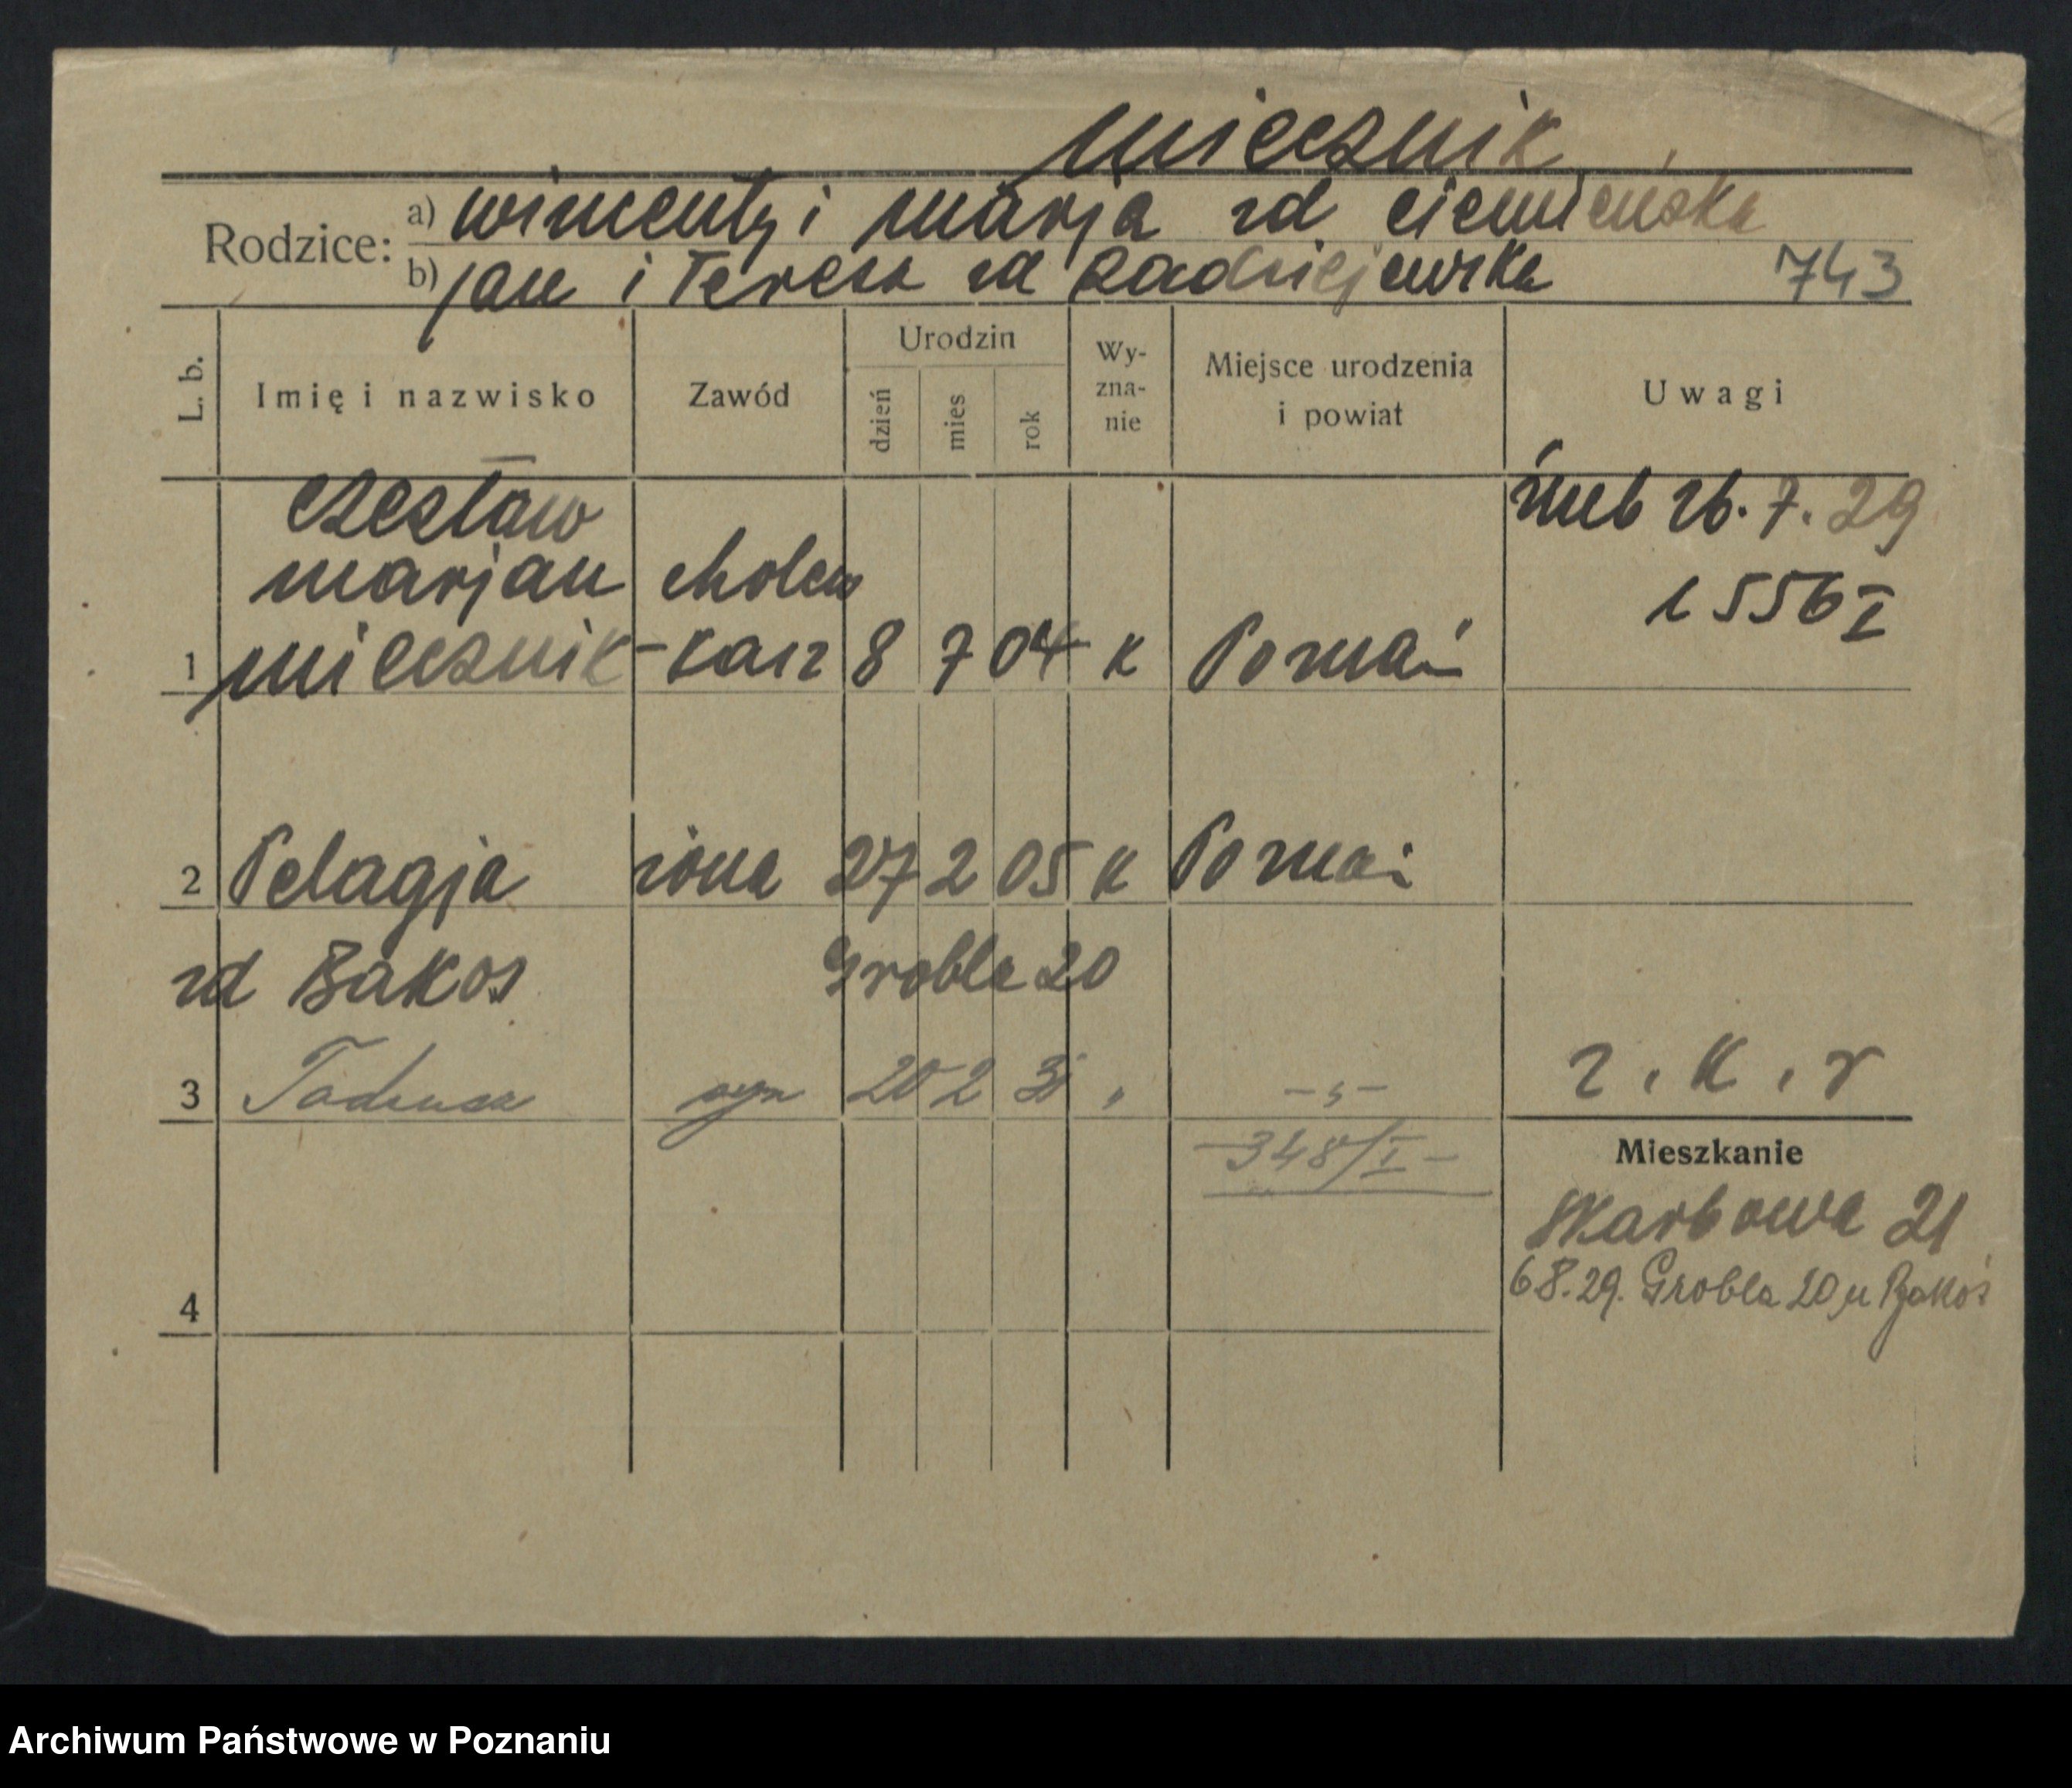 Miecznik
Rodzice: a) Wincenty i Marja zd Ciemieńska
b) Jan i Teresa zd Radziejewska 743
L. b. Imię i nazwisko Zawód Urodzin dzień mies rok Wy-zna-nie Miejsce urodzenia i powiat Uwagi
Czesław
Marjan cholew
1 Miecznik - karz 8 7 04 k Poznań
ślub 26.7.29
1556 I
2 Pelagja żona 27 2 05 k Poznań
zd Bakoś Grobla 20
3 Tadeusz syn 20 2 31 „ - „ -
r. k. r
-348/I-
Mieszkanie
Skarbowa 21
6 8.29. Grobla 20 u Bakoś
4
Archiwum Państwowe w Poznaniu